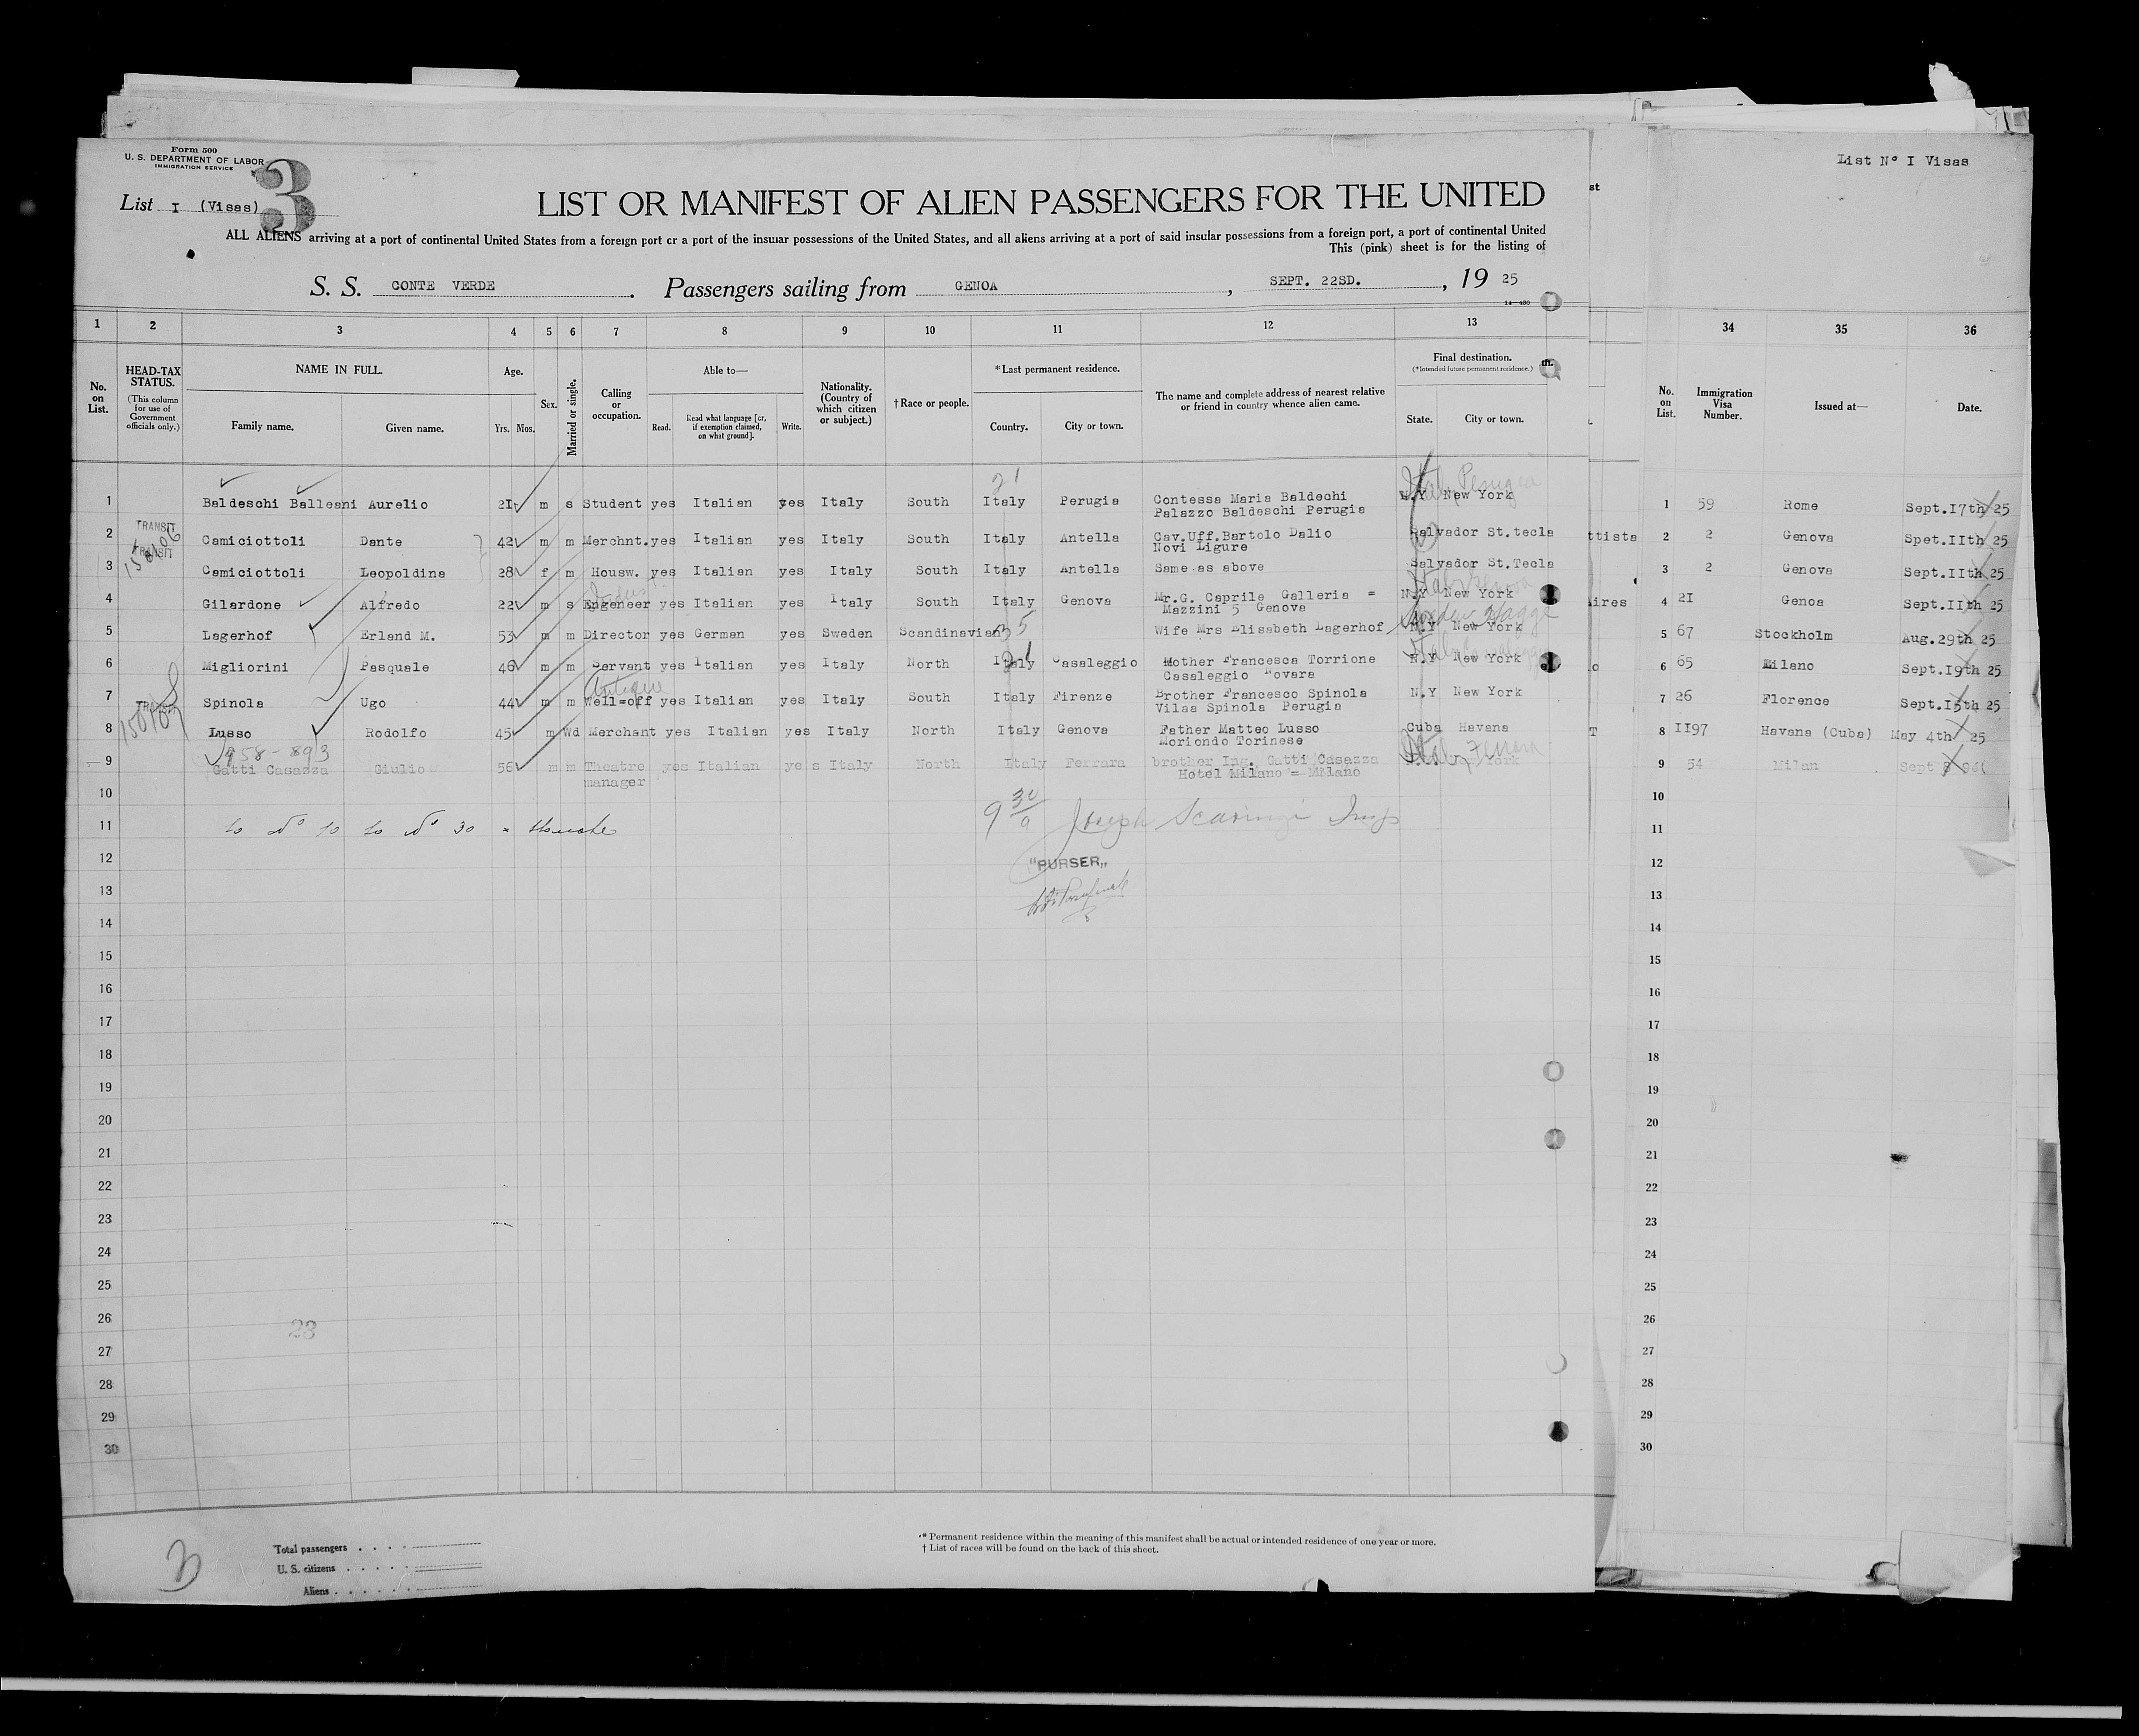 Form 500
U. S. DEPARTMENT OF LABOR
IMMIGRATION SERVICE
3
List I (Visas)
LIST OR MANIFEST OF ALIEN PASSENGERS FOR THE UNITED
ALL ALIENS arriving at a port of continental United States from a foreign port or a port of the insular possessions of the United States, and all aliens arriving at a port of said insular possessions from a foreign port, a port of continental United
This (pink) sheet is for the listing of
S. S. CONTE VERDE. Passengers sailing from GENOA, SEPT. 22SD., 19 25
14—480
st
List Nº I Visas
1 2 3 4 5 6 7 8 9 10 11 12 13
34 35 36
No. on List.
HEAD-TAX STATUS.
(This column for use of Government officials only.)
NAME IN FULL.
Family name. Given name.
Age.
Yrs. Mos.
Sex.
Married or single.
Calling or occupation.
Able to—
Read. Read what language [or, if exemption claimed, on what ground]. Write.
Nationality. (Country of which citizen or subject.)
†Race or people.
*Last permanent residence.
Country. City or town.
The name and complete address of nearest relative or friend in country whence alien came.
Final destination.
(*Intended future permanent residence.)
State. City or town.
No. on List.
Immigration Visa Number.
Issued at—
Date.
21
1 Baldeschi Ballesni Aurelio 2I m s Student yes Italian yes Italy South Italy Perugia Contessa Maria Baldechi N.Y New York 1 59 Rome Sept.I7th 25
Palazzo Baldeschi Perugia
Italy Perugia
TRANSIT
2 Camiciottoli Dante 42 m m Merchnt. yes Italian yes Italy South Italy Antella Cav.Uff.Bartolo Dalio Salvador St.tecla ttista 2 2 Genova Spet.IIth 25
Novi Ligure
TRANSIT
3 Camiciottoli Leopoldina 28 f m Housw. yes Italian yes Italy South Italy Antella Same as above Salvador St.Tecla 3 2 Genova Sept.IIth 25
4 Gilardone Alfredo 22 m s Engeneer yes Italian yes Italy South Italy Genova Mr.G. Caprile Galleria = N.Y New York ires 4 2I Genoa Sept.IIth 25
Mazzini 5 Genova
5 Lagerhof Erland M. 53 m m Director yes German yes Sweden Scandinavian 35 Wife Mrs Elisabeth Lagerhof N.Y New York 5 67 Stockholm Aug.29th 25
6 Migliorini Pasquale 46 m m Servant yes Italian yes Italy North Italy Casaleggio Mother Francesca Torrione N.Y New York o 6 65 Milano Sept.I9th 25
Casaleggio Novara
Antique
7 Spinola Ugo 44 m m Well=off yes Italian yes Italy South Italy Firenze Brother Francesco Spinola N.Y New York 7 26 Florence Sept.I5th 25
Vilaa Spinola Perugia
TRANSIT
8 Lusso Rodolfo 45 m Wd Merchant yes Italian yes Italy North Italy Genova Father Matteo Lusso Cuba Havana T 8 II97 Havana (Cuba) May 4th 25
Moriondo Torinese
958-893
Italy Ferrara
9 Gatti Casazza Giulio 56 m m Theatre yes Italian yes Italy North Italy Ferrara brother Ing. Gatti Casazza York 9 54 Milan Sept
manager Hotel Milano = Milano
10 10
9 30/a Joseph Scaringi Insp
11 to Nº 10 to Nº 30 11
12 "PURSER" 12
13 13
14 14
15 15
16 16
17 17
18 18
19 19
20 20
21 21
22 22
23 23
24 24
25 25
26 26
23
27 27
28 28
29 29
30 30
Total passengers
U. S. citizens
Aliens
* Permanent residence within the meaning of this manifest shall be actual or intended residence of one year or more.
† List of races will be found on the back of this sheet.